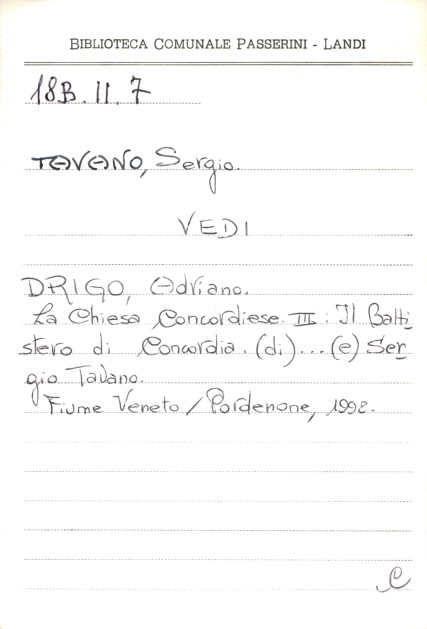 BIBLIOTECA COMUNALE PASSERINI - LANDI
18B.II.7
TAVANO, Sergio.
VEDI
DRIGO, Adriano.
La Chiesa Concordiese. III : Il Batti
stero di Concordia. (di)... (e) Ser
gio Tavano.
Fiume Veneto / Pordenone, 1992.
C